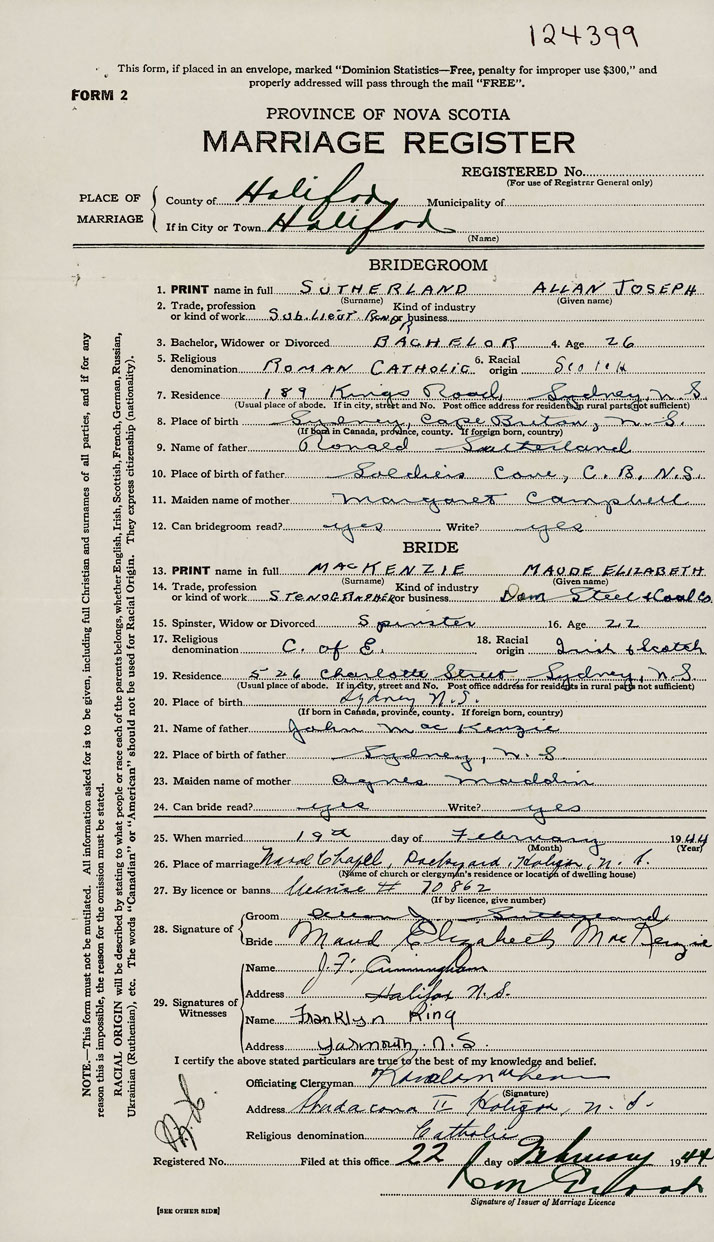 124399
This form, if placed in an envelope, marked "Dominion Statistics—Free, penalty for improper use $300," and
properly addressed will pass through the mail "FREE".
FORM 2
PROVINCE OF NOVA SCOTIA
MARRIAGE REGISTER
REGISTERED No.
(For use of Registrar General only)
PLACE OF MARRIAGE
County of Halifax Municipality of
If in City or Town Halifax
(Name)
BRIDEGROOM
1. PRINT name in full SUTHERLAND ALLAN JOSEPH
(Surname) (Given name)
2. Trade, profession or kind of work Sub. Lieut. Kind of industry or business
3. Bachelor, Widower or Divorced BACHELOR 4. Age 26
5. Religious denomination ROMAN CATHOLIC 6. Racial origin Scotch
7. Residence 189 Kings Road, Sydney, N.S.
(Usual place of abode. If in city, street and No. Post office address for residents in rural parts not sufficient)
8. Place of birth Sydney, Cape Breton, N.S.
(If born in Canada, province, county. If foreign born, country)
9. Name of father Ronald Sutherland
10. Place of birth of father Soldiers Cove, C.B. N.S.
11. Maiden name of mother Margaret Campbell
12. Can bridegroom read? yes Write? yes
BRIDE
13. PRINT name in full MACKENZIE MAUDE ELIZABETH
(Surname) (Given name)
14. Trade, profession or kind of work STENOGRAPHER Kind of industry or business Dom Steel & Coal Co
15. Spinster, Widow or Divorced Spinster 16. Age 22
17. Religious denomination C. of E. 18. Racial origin Irish & Scotch
19. Residence 526 Charlotte Street, Sydney, N.S.
(Usual place of abode. If in city, street and No. Post office address for residents in rural parts not sufficient)
20. Place of birth Sydney N.S.
(If born in Canada, province, county. If foreign born, country)
21. Name of father John MacKenzie
22. Place of birth of father Sydney, N.S
23. Maiden name of mother Agnes Maddin
24. Can bride read? yes Write? yes
25. When married 19th day of February 1944
(Month) (Year)
26. Place of marriage Naval Chapel, Dockyard, Halifax, N.S.
(Name of church or clergyman's residence or location of dwelling house)
27. By licence or banns license # 70862
(If by licence, give number)
28. Signature of
Groom Allan J. Sutherland
Bride Maud Elizabeth MacKenzie
29. Signatures of Witnesses
Name J.F. Cunningham
Address Halifax N.S.
Name Franklyn King
Address Yarmouth N.S.
I certify the above stated particulars are true to the best of my knowledge and belief.
Officiating Clergyman
(Signature)
Address Stadacona II Halifax, N.S.
Religious denomination Catholic
Registered No. Filed at this office 22 day of February 1944
Signature of Issuer of Marriage Licence
[SEE OTHER SIDE]
NOTE.—This form must not be mutilated. All information asked for is to be given, including full Christian and surnames of all parties, and if for any
reason this is impossible, the reason for the omission must be stated.
RACIAL ORIGIN will be described by stating to what people or race each of the parents belongs, whether English, Irish, Scottish, French, German, Russian,
Ukrainian (Ruthenian), etc. The words "Canadian" or "American" should not be used for Racial Origin. They express citizenship (nationality).